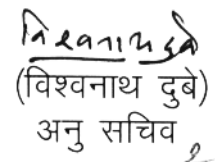 विश्वनाथ दुबे
(विश्वनाथ दुबे)
अनु सचिव